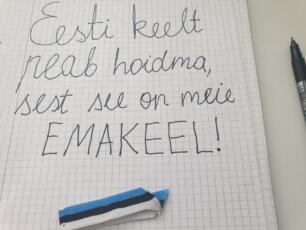 Eesti keelt
peab hoidma,
sest see on meie
EMAKEEL!